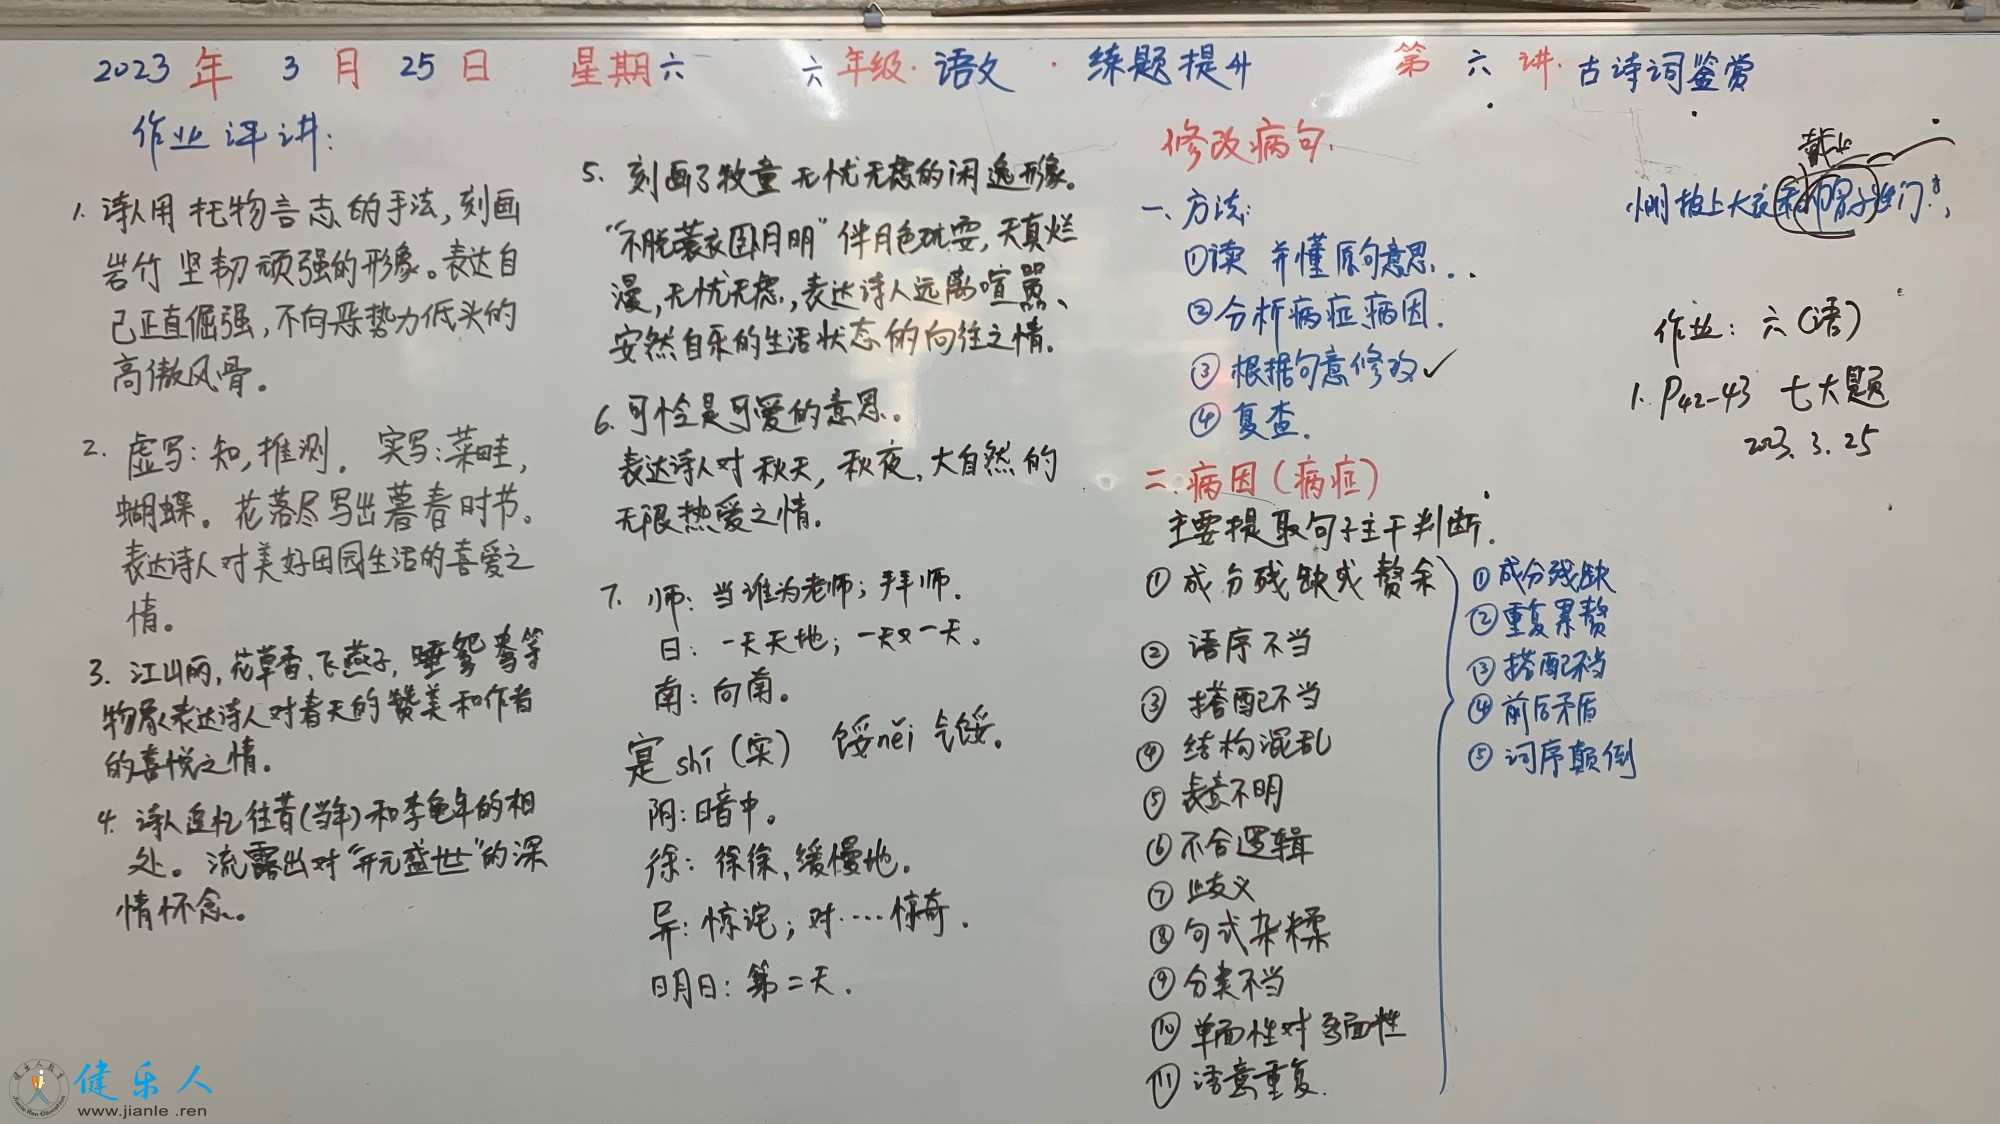 2023年3月25日 星期六 六年级·语文·练题提升 第六讲·古诗词鉴赏
作业评讲:
1. 诗人用托物言志的手法,刻画
岩竹坚韧顽强的形象。表达自
己正直倔强,不向恶势力低头的
高傲风骨。
2. 虚写:知,推测。实写:菜畦,
蝴蝶。花落尽写出暮春时节。
表达诗人对美好田园生活的喜爱之
情。
3. 江山丽,花草香,飞燕子,睡鸳鸯等
物象表达诗人对春天的赞美和作者
的喜悦之情。
4. 诗人追忆往昔(当年)和李龟年的相
处。流露出对“开元盛世”的深
情怀念。
5. 刻画了牧童无忧无虑的闲逸形象。
“不脱蓑衣卧月明”伴月色玩耍,天真烂
漫,无忧无虑,表达诗人远离喧嚣、
安然自乐的生活状态的向往之情。
6. 可怜是可爱的意思。
表达诗人对秋天,秋夜,大自然的
无限热爱之情。
7. 师:当谁为老师;拜师.
日:一天天地;一天又一天。
南:向南。
寔shí(实) 馁něi 气馁。
阴:暗中。
徐:徐徐,缓慢地。
异:惊诧;对……惊奇.
明日:第二天.
修改病句.
一、方法:
①读 并懂原句意思...
②分析病症病因.
③根据句意修改✓
④复查.
二.病因(病症)
主要提取句子主干判断.
①成分残缺或赘余
②语序不当
③搭配不当
④结构混乱
⑤表意不明
⑥不合逻辑
⑦歧义
⑧句式杂糅
⑨分类不当
⑩单面性对多面性
⑪语意重复.
①成分残缺
②重复累赘
③搭配不当
④前后矛盾
⑤词序颠倒
戴上
小刚披上大衣和帽子出门
作业:六(语)
1. P42-43 七大题
2023.3.25
健乐人
www.jianle.ren